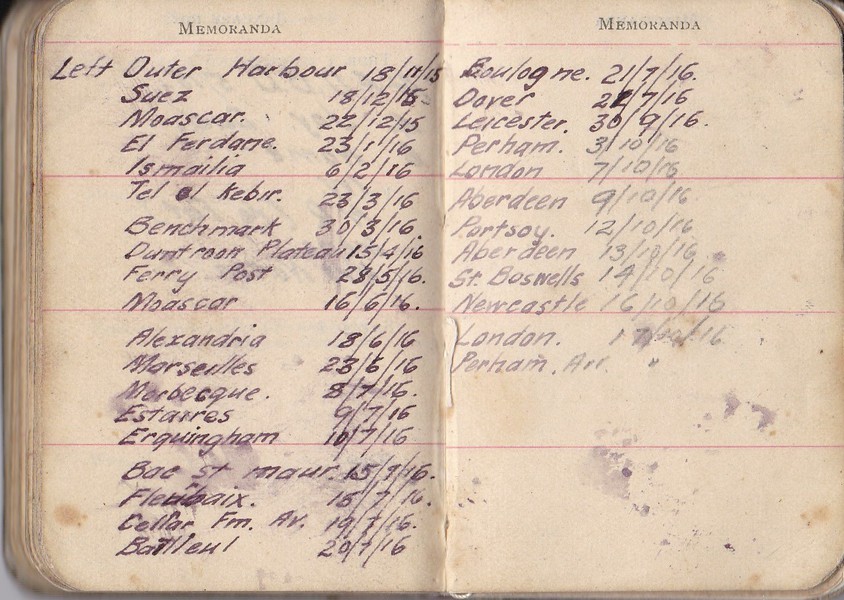 MEMORANDA
Left Outer Harbour 18/11/15
Suez 18/12/15
Moascar. 22/12/15
El Ferdane. 23/1/16
Ismailia 6/2/16
Tel el Kebir. 23/3/16
Benchmark 30/3/16.
Duntroon Plateau 15/4/16
Ferry Post 28/5/16.
Moascar 16/6/16.
Alexandria 18/6/16
Marseilles 23/6/16
Morbecque. 8/7/16.
Estaires 9/7/16
Erquingham 10/7/16
Bac St maur. 15/7/16.
Fleubaix. 15/7/16.
Cellar Fm. Av. 19/7/16.
Bailleul 20/7/16
MEMORANDA
Boulogne. 21/7/16.
Dover 22/7/16
Leicester. 30/9/16.
Perham. 3/10/16
London 7/10/16
Aberdeen 9/10/16
Portsoy. 12/10/16
Aberdeen 13/10/16
St. Boswells 14/10/16
Newcastle 16/10/16
London. 17/10/16
Perham. Arr. "